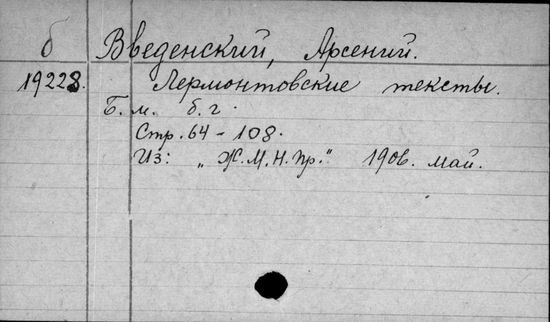 б
Введенский, Арсений.
19228. Лермонтовские тексты.
Б. м. б. г.
Стр. 64 - 108.
Из: „Ж. М. Н. Пр." 1906. май.